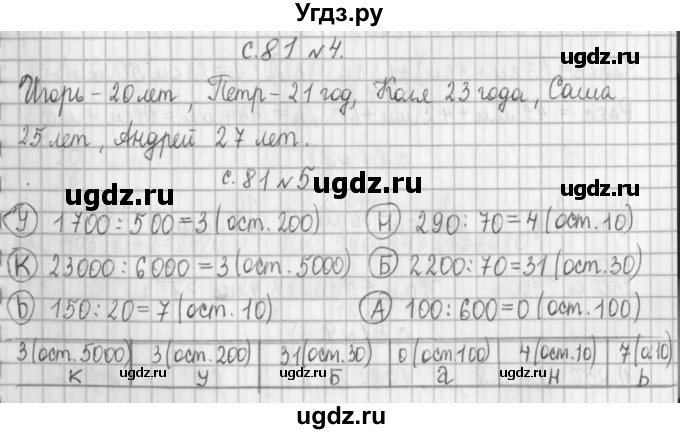 Угдз.ру
с.81 №4.
ugdz.ru
Игорь - 20 лет, Петр - 21 год, Коля 23 года, Саша
25 лет, Андрей 27 лет.
ugdz.ru ugdz.ru
с.81 №5
ugdz.ru
У 1700 : 500 = 3 (ост. 200) Н 290 : 70 = 4 (ост. 10)
ugdz.ru
К 23000 : 6000 = 3 (ост. 5000) Б 2200 : 70 = 31 (ост. 30)
ugdz.ru
Ь 150 : 20 = 7 (ост. 10) А 100 : 600 = 0 (ост. 100)
ugdz.ru
3 (ост. 5000) 3 (ост. 200) 31 (ост. 30) 0 (ост. 100) 4 (ост. 10) 7 (о. 10)
К У Б а н Ь
ugdz.ru ugdz.ru ugdz.ru ugdz.ru
ugdz.ru